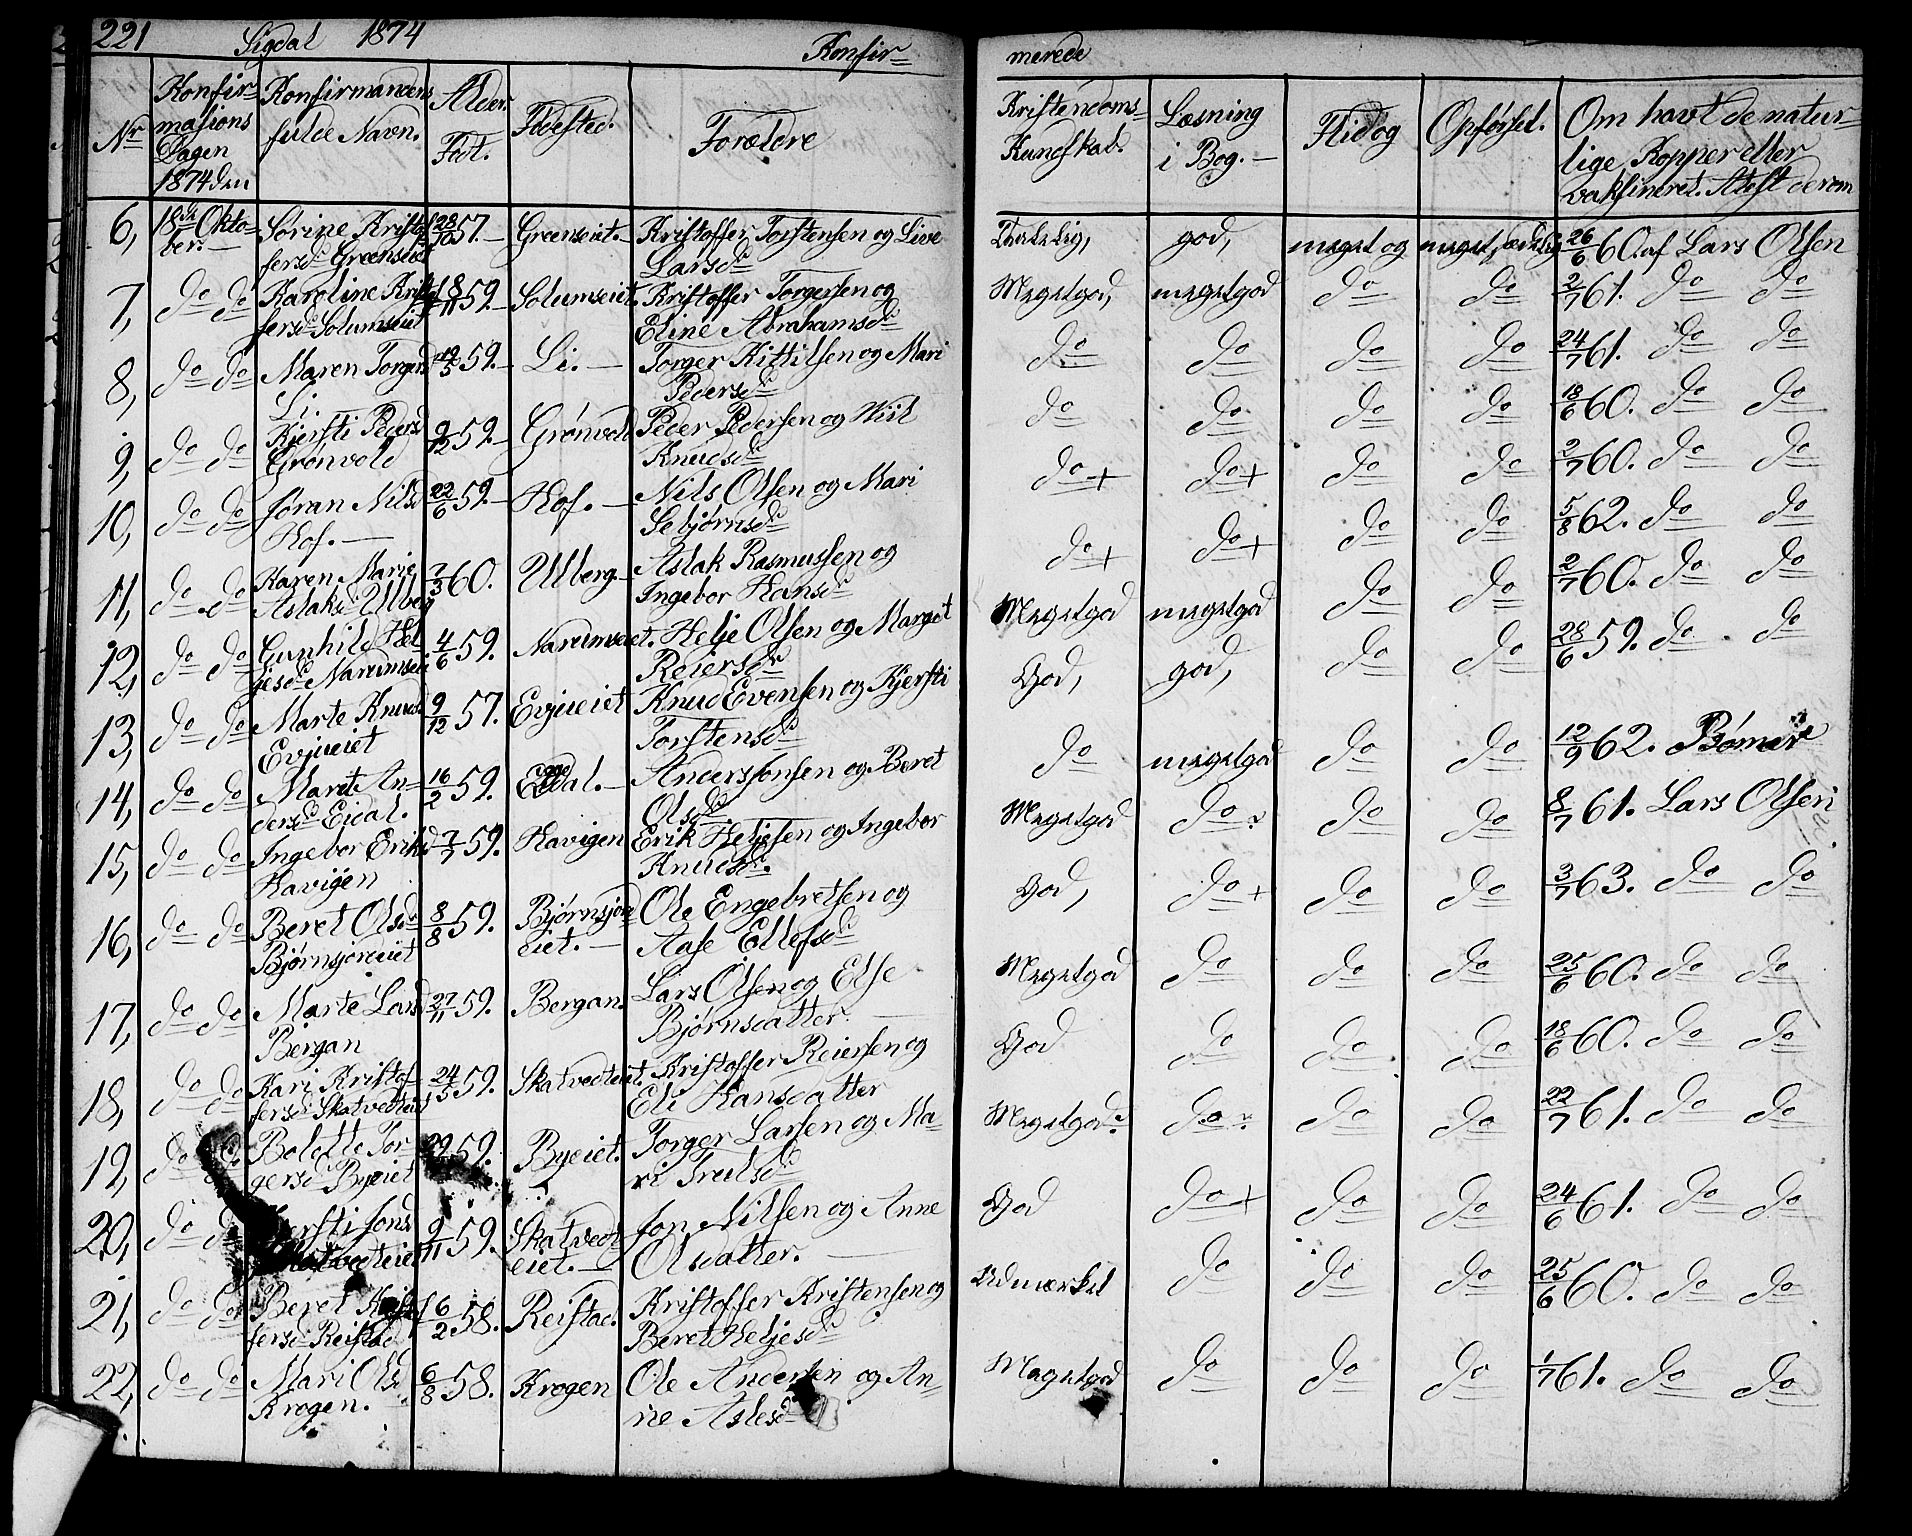 221 Sigdal 1874 Konfir=
merede
Nr
Konfir=
masions
Dagen
1874 den
Konfirmandens
fulde Navn.
Alder.
Fdt.
Fdested.
Forældre
Kristendoms=
Kundskab.
Læsning
i Bog. —
Flid og
Opførsel.
Om havt de natur=
lige Kopper eller
vaksineret. Atest derom
6, 18de Okto= Sørine Kristof 28/10 57. — Grønseiet. — Kristoffer Torstensen og Live god, meget og 26/6 60. af Lars Olsen
ber. — fersd. Larsd.
7, do do Karoline Kristof 18/11 59. — Solumseiet. Kristoffer Torgersen og Megetgod, megetgod do do 2/7 61. do do
fersd. Solumseiet Eline Abrahamsd.
8, do do Maren Torgersd 59. — Li. — Torger Kittilsen og Mari do do do do 24/7 61. do do
Li. Pedersd.
9, do do Kjersti Peders 9/12 59. — Grønvold Peder Pedersen og do do do do 18/6 60. do do
Grønvold Knudsd.
10, do do Jøran Nilsd 22/6 59. — Hof. — Nils Olsen og Mari do + do + do do 2/7 60. do do
Hof. — Sebjørnsd.
11, do do Karen Marie 7/3 60. Ulberg — Aslak Rasmussen og do + do + do do 5/8 62. do do
Aslaksd. Ulberg Ingebor Hansd.
12, do do Gunhild Hel 4/6 59. Narumseiet. Helje Olsen og Marget Megetgod megetgod do do 2/7 60. do do
jesd. Narumseiet Reiersdr
13, do do Marte Knud 9/12 57. Evjueiet Knud Evensen og Kjersti God, god, do do 28/6 59. do do
Evjueiet Torstensd.
14, do do Maret An= 16/2 59. — Anders Jonsen og Beret do megetgod do do 12/9 62. Bømer
dersd. Eidal. Olsd.
15, do do Ingebor Eriksd 7/7 59. Havigen Erik Heljesen og Ingebor Megetgod do do do 8/7 61. Lars Olsen
Havigen Knudsdr.
16, do do Beret Olsdr 8/8 59. Bjørnsjord Ole Engebretsen og God, do + do do 3/7 63. do do
Bjørnsjordeiet eiet. — Aase Ellefsd.
17, do do Marte Larsd 27/11 59. Bergan. Lars Olsen og Else Megetgod do do do 25/6 60. do do
Bergan Bjørnsdatter. —
18, do do Kari Kristof= 24/5 59. Skatvedteiet. Kristoffer Reiersen og God do do do 18/6 60. do do
fersd. Skatvedteiet Eli Hansdatter
19, do do Bolette Tor= 59. Byeiet. Torger Larsen og Ma= Megetgod do do do 22/7 61. do do
gersd. Byeiet ri Trulsd.
20, do Kjersti Jonsd 9/11 59. Skatvedt Jon Nilsen og Anne God do + do do 24/6 61. do do
Skatvedteiet eiet. — Olsdatter. —
21, do do Beret Kristof 6/2 58. Reistad. Kristoffer Kristensen og Udmærket do do do 25/6 60. do do
fersd. Reistad Beret Heljesd.
22, do do Mari Olsd. 6/8 58. Krogen Ole Andersen og An= Megetgod do do do 1/7 61. do do
Krogen. ne Aslesd.